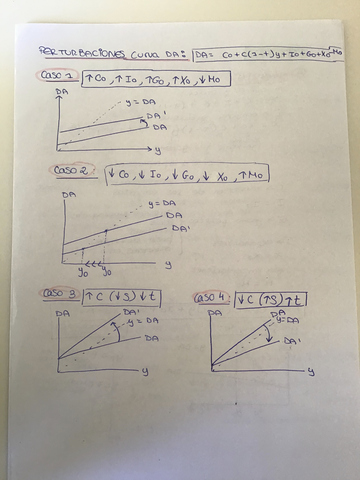 PERTURBACIONES CURVA DA: DA = C0 + c(1-t)y + I0 + G0 + X0 - M0
CASO 1 ↑ C0, ↑ I0, ↑ G0, ↑ X0, ↓ M0
DA
y = DA
DA'
DA
y
CASO 2 ↓ C0, ↓ I0, ↓ G0, ↓ X0, ↑ M0
DA
y = DA
DA
DA'
y0' <<< y0 y
CASO 3 ↑ C (↓ S) ↓ t
DA
DA'
y = DA
DA
y
CASO 4 ↓ C (↑ S) ↑ t
DA
DA
y = DA
DA'
y